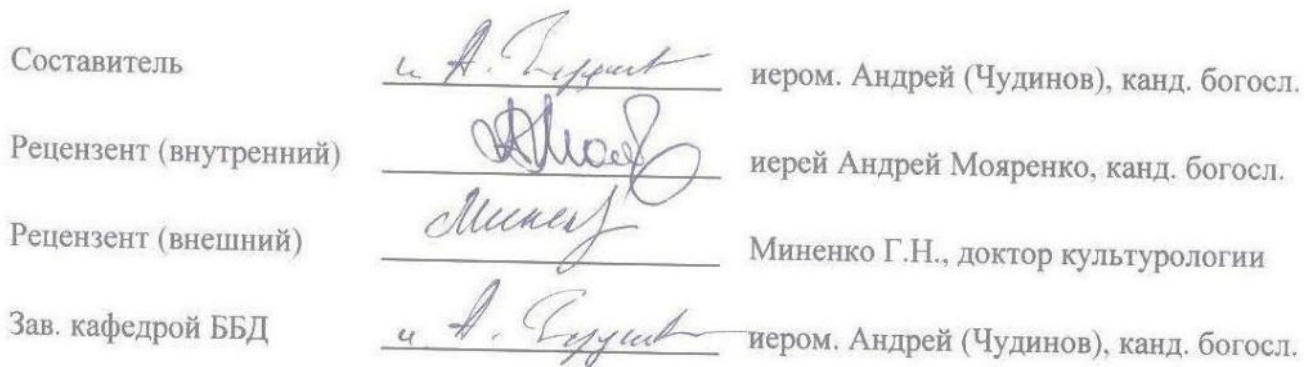 Составитель и А. Чудинов иером. Андрей (Чудинов), канд. богосл.
Рецензент (внутренний) иерей Андрей Мояренко, канд. богосл.
Рецензент (внешний) Миненко Г.Н., доктор культурологии
Зав. кафедрой ББД и А. Чудинов иером. Андрей (Чудинов), канд. богосл.